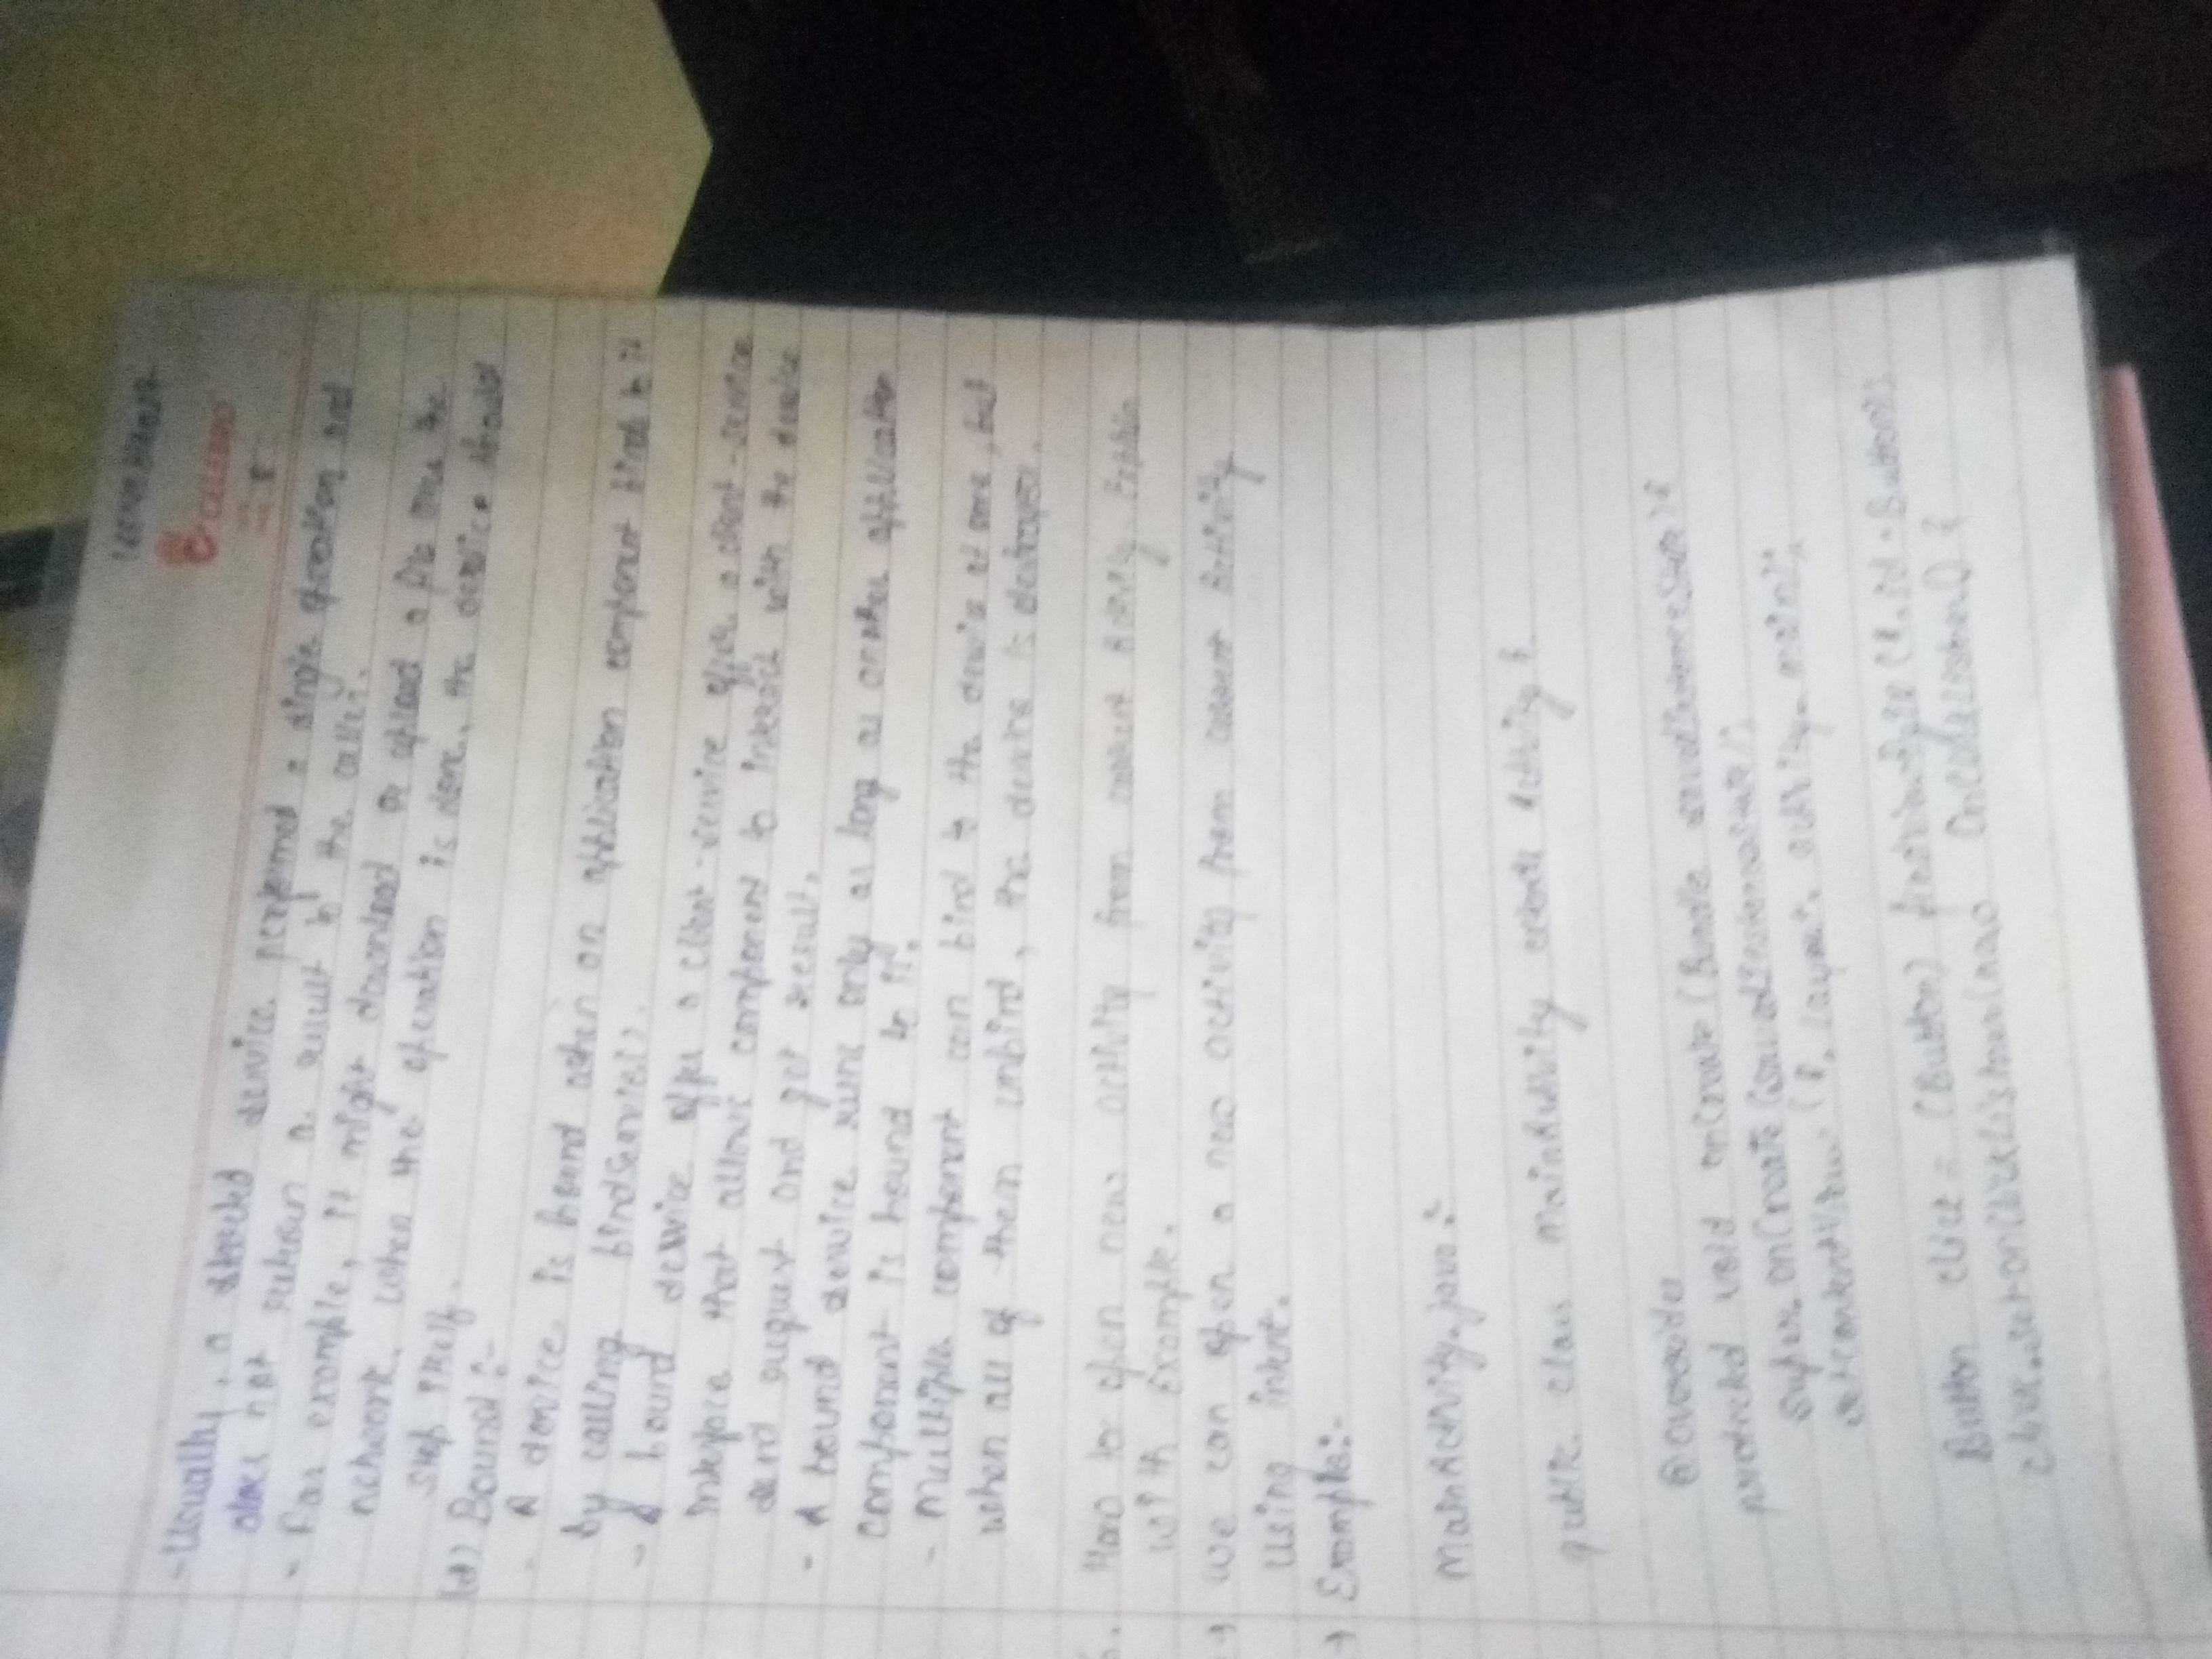 CELEBRO
- Usually, a started service performed a single operation and
does not return a result to the caller.
- For example, it might download or upload a file over the
network. when the operation is done, the service should
stop itself.
Bound :-
- A service is bound when an application component binds to it
by calling
- A bound service offer a client-service offer a client-service
interface that allows component to interact with the service
send request and get result.
- A bound service runs only as long as another application
component is bound to it.
- Multiple component can bind to the service at once, but
when all of them unbind, the service is destroyed.
How to open new activity from current Activity Explain
with Example.
→ we can open a new activity from current Activity
using intent.
→ Example:-
MainActivity.java :-
public class MainActivity extends Activity {
protected void onCreate (Bundle savedInstanceState) {
super. onCreate (savedInstanceState);
setContentView (R. layout. activity_main);
Button click = (Button) findViewById (R. id. Button);
click.setOnClickListener(new OnClickListener() {